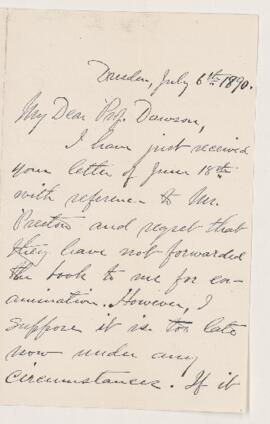 Dresden, July 6th 1890.
My Dear Prof. Dawson,
I have just received
your letter of June 18th
with reference to Mr.
Preston and regret that
they have not forwarded
the book to me for ex-
amination. However, I
suppose it is too late
now under any
circumstances. If it